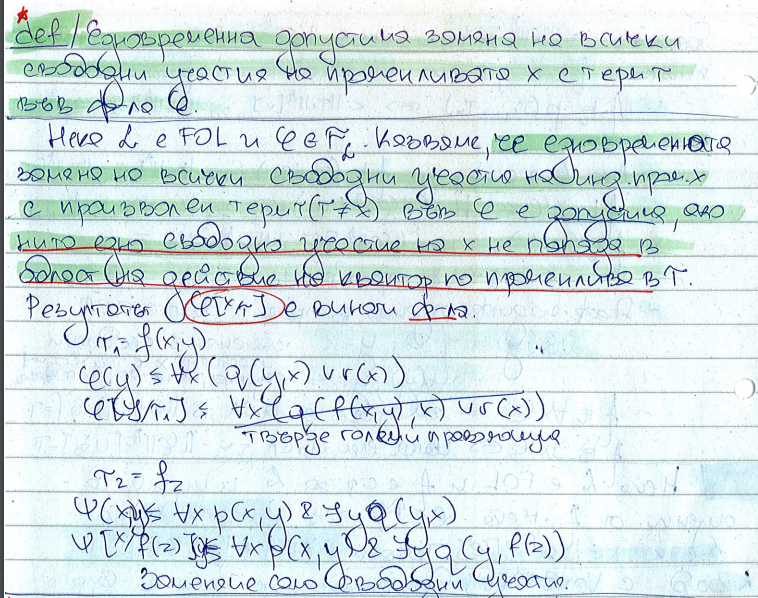 def/ Едновременна допустима замяна на всички
свободни участия на променливата x с терм τ
във ф-ла φ.
Нека L е FOL и φ ∈ F_L. Казваме, че едновременната
замяна на всички свободни участия на инд. пром. x
с произволен терм τ (τ≠x) във φ е допустима, ако
нито едно свободно участие на x не попада в
област на действие на квантор по променлива в τ.
Резултатът φ[x/τ] е винаги ф-ла.
τ₁ = f(x,y)
φ(y) ≤ ∀x (q(y,x) ∨ r(x))
φ[y/τ₁] ≤ ∀x (q(f(x,y),x) ∨ r(x))
τ₂ = f₂
Ψ(x,y) ≤ ∀x p(x,y) & ∃y q(y,x)
Ψ[x/f(z)] ≤ ∀x p(x,y) & ∃y q(y, f(z))
Заменяме само свободни участия.